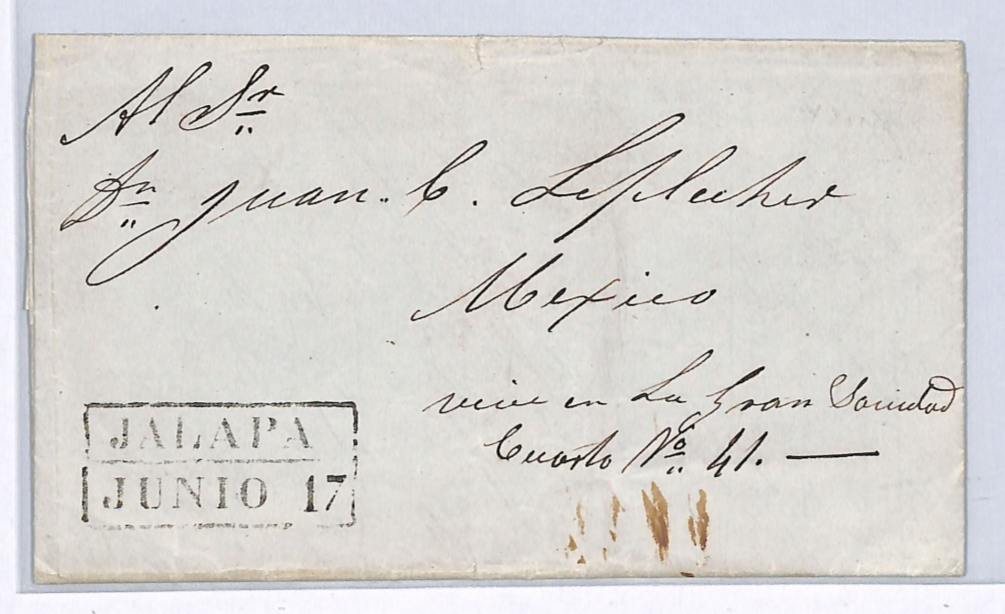 Al Sr
Dn Juan. C.
Mexico
vive en La Gran Sociedad
Cuarto No 41.
JALAPA
JUNIO 17